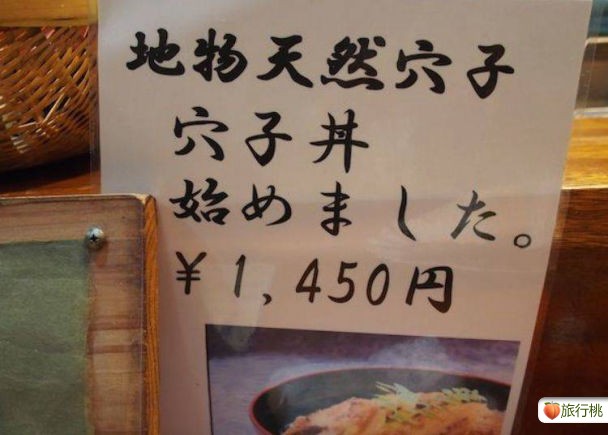 地物天然穴子
穴子丼
始めました。
￥1,450円
旅行桃